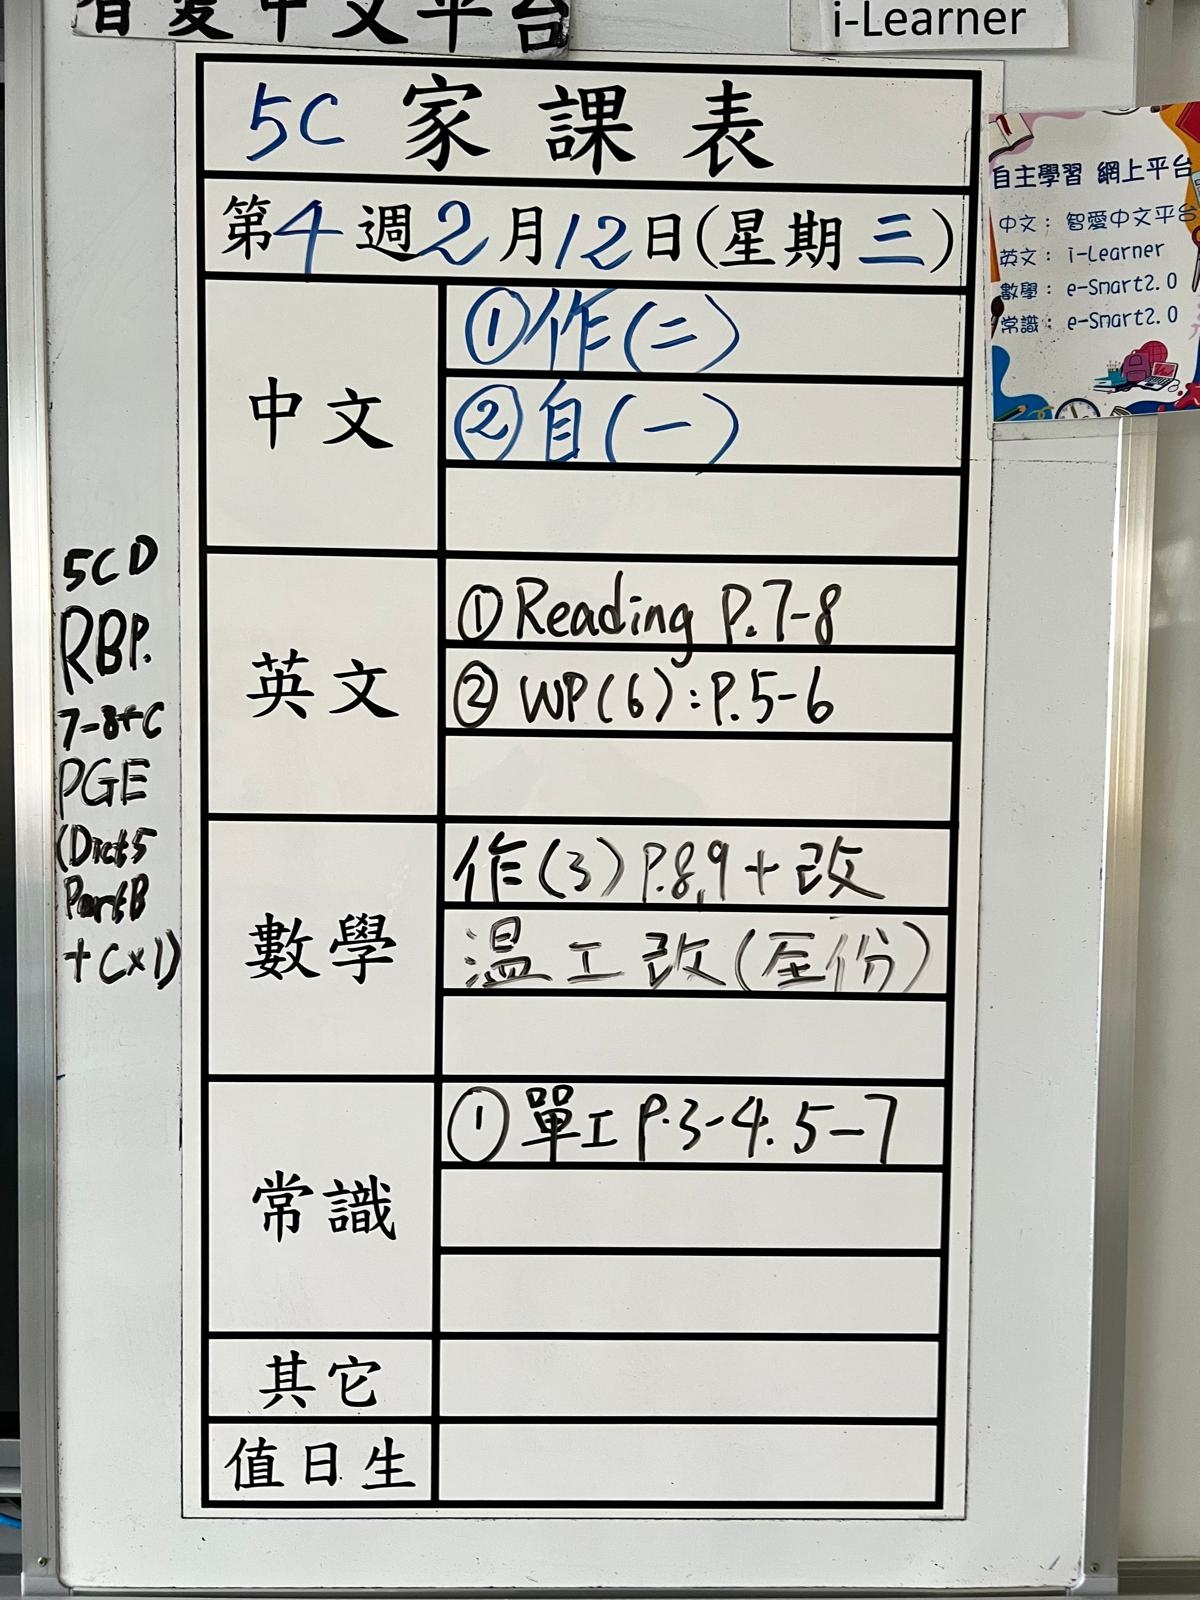 智愛中文平台
i-Learner
5C 家課表
第4週2月12日(星期三)
中文
①作(二)
②自(一)
英文
①Reading P.7-8
② WP(6):P.5-6
數學
作(3)P.8,9+改
溫工改(
份)
常識
①單工P.3-4. 5-7
其它
值日生
5CD
RBP.
7-8+C
PGE
(Dict5
PartB
+C×1)
自主學習 網上平台
中文：智愛中文平台
英文：i-Learner
數學：e-Smart2.0
常識：e-Smart2.0